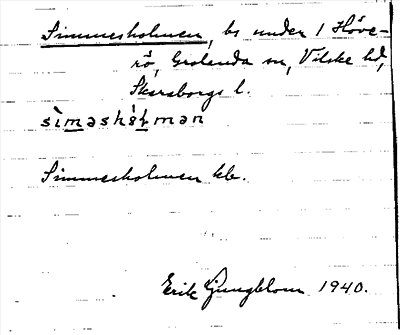 Simmesholmen, bs under 1 Höve-
rö, Grolanda sn, Vilske hd,
Skaraborgs l.
Simmesholmen kbr.
Erik Ljungblom 1940.